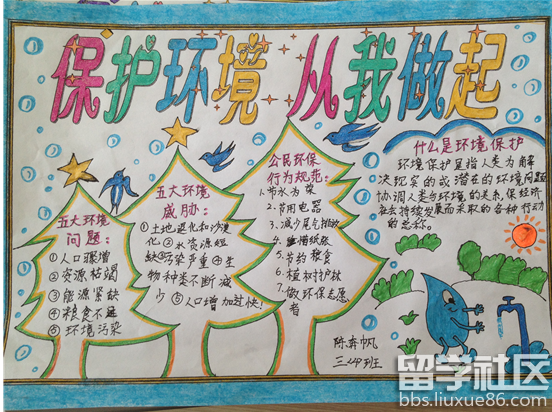 保护环境 从我做起
五大环境
问题：
①人口骤增
②资源枯竭
③能源紧缺
④粮食不足
⑤环境污染
五大环境
威胁：
①土地退化和沙漠
化②水资源短
缺③污染严重④生
物种类不断减
少⑤人口增加过快！
公民环保
行为规范：
1.节水为荣
2.节用电器
3.减少尾气排放
4.珍惜纸张
5.节约粮食
6.植树护林
7.做环保志愿
者
什么是环境保护
环境保护是指人类为解
决现实的或潜在的环境问题
协调人类与环境的关系,保经济
社会持续发展而采取的各种行动
的总称。
陈奔帆
三(4)班
留学社区
bbs.liuxue86.com